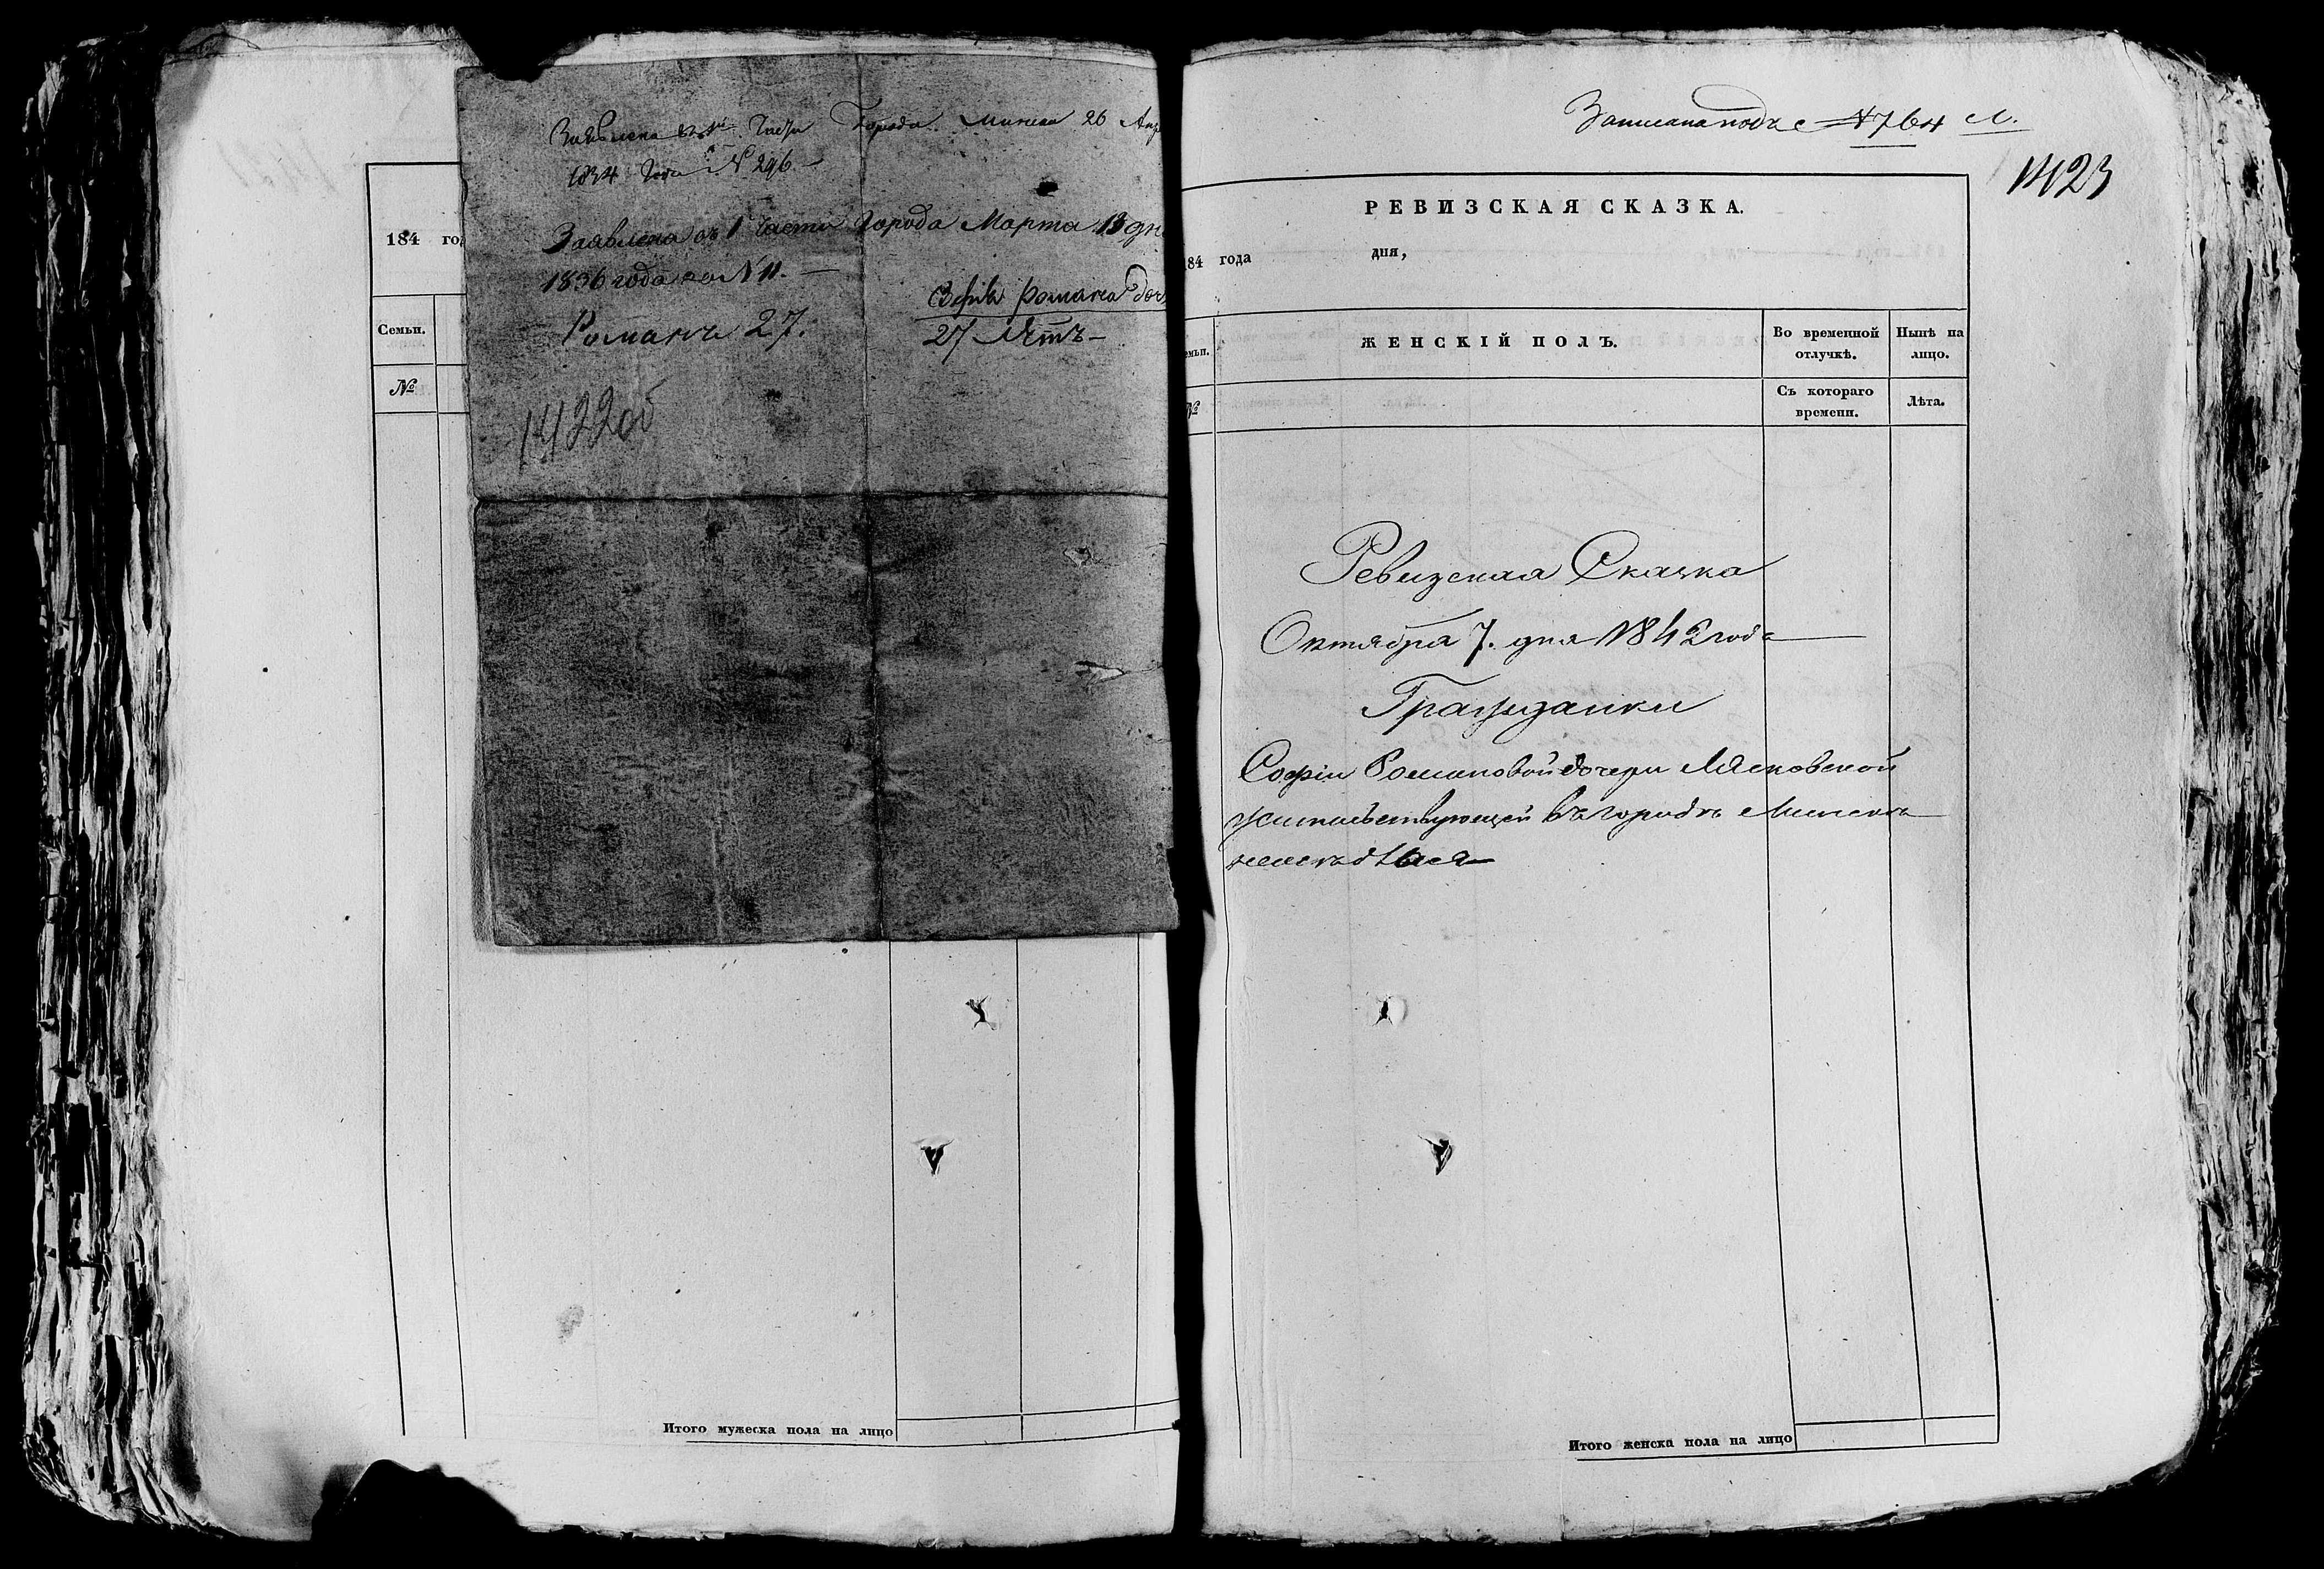 184 го
Семьи.
№
Заявлена въ 1й Части Города Минска 26 Апр
1834 Года № 296.
Заявлена въ 1 Части Города Марта 13 дня
1836 года за № 11.
Романъ 27.
Зофiя Романа доч
27 Лѣтъ
1422об
Итого мужеска пола на лицо
Записана подъ № 764 Л.
1423
РЕВИЗСКАЯ СКАЗКА.
184 года дня,
емьи.
ЖЕНСКІЙ ПОЛЪ.
Во временной отлучкѣ.
Нынѣ на лицо.
№
Съ котораго времени.
Лѣта.
Ревизская Сказка
Октября 7. дня 1842 года
Гражданки
Софіи Романовой дочери Лясковской
жительствующей въ городѣ Минскѣ
Итого женска пола на лицо